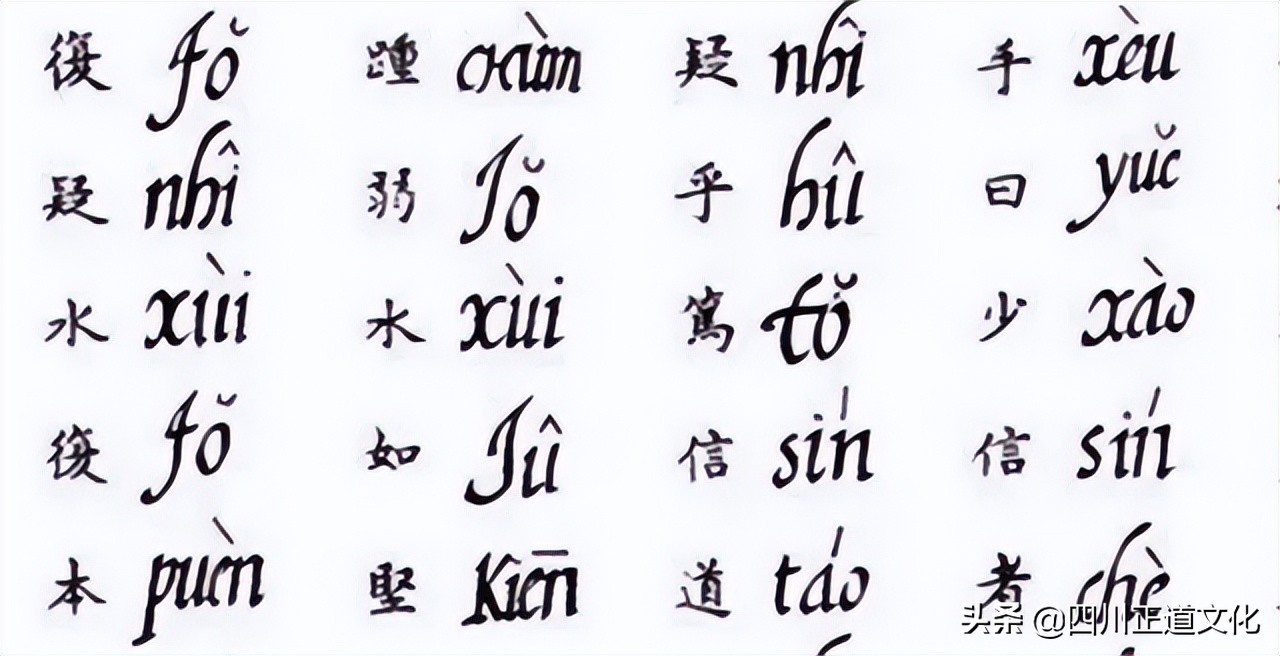 復 fŏ 踵 chùm 疑 nhî 手 xèu
疑 nhî 弱 Jŏ 乎 hû 曰 yuĕ
水 xùi 水 xùi 篤 tŏ 少 xào
復 fŏ 如 Jû 信 sín 信 sín
本 puèn 堅 Kīen 道 táo 者 chè
头条 @四川正道文化